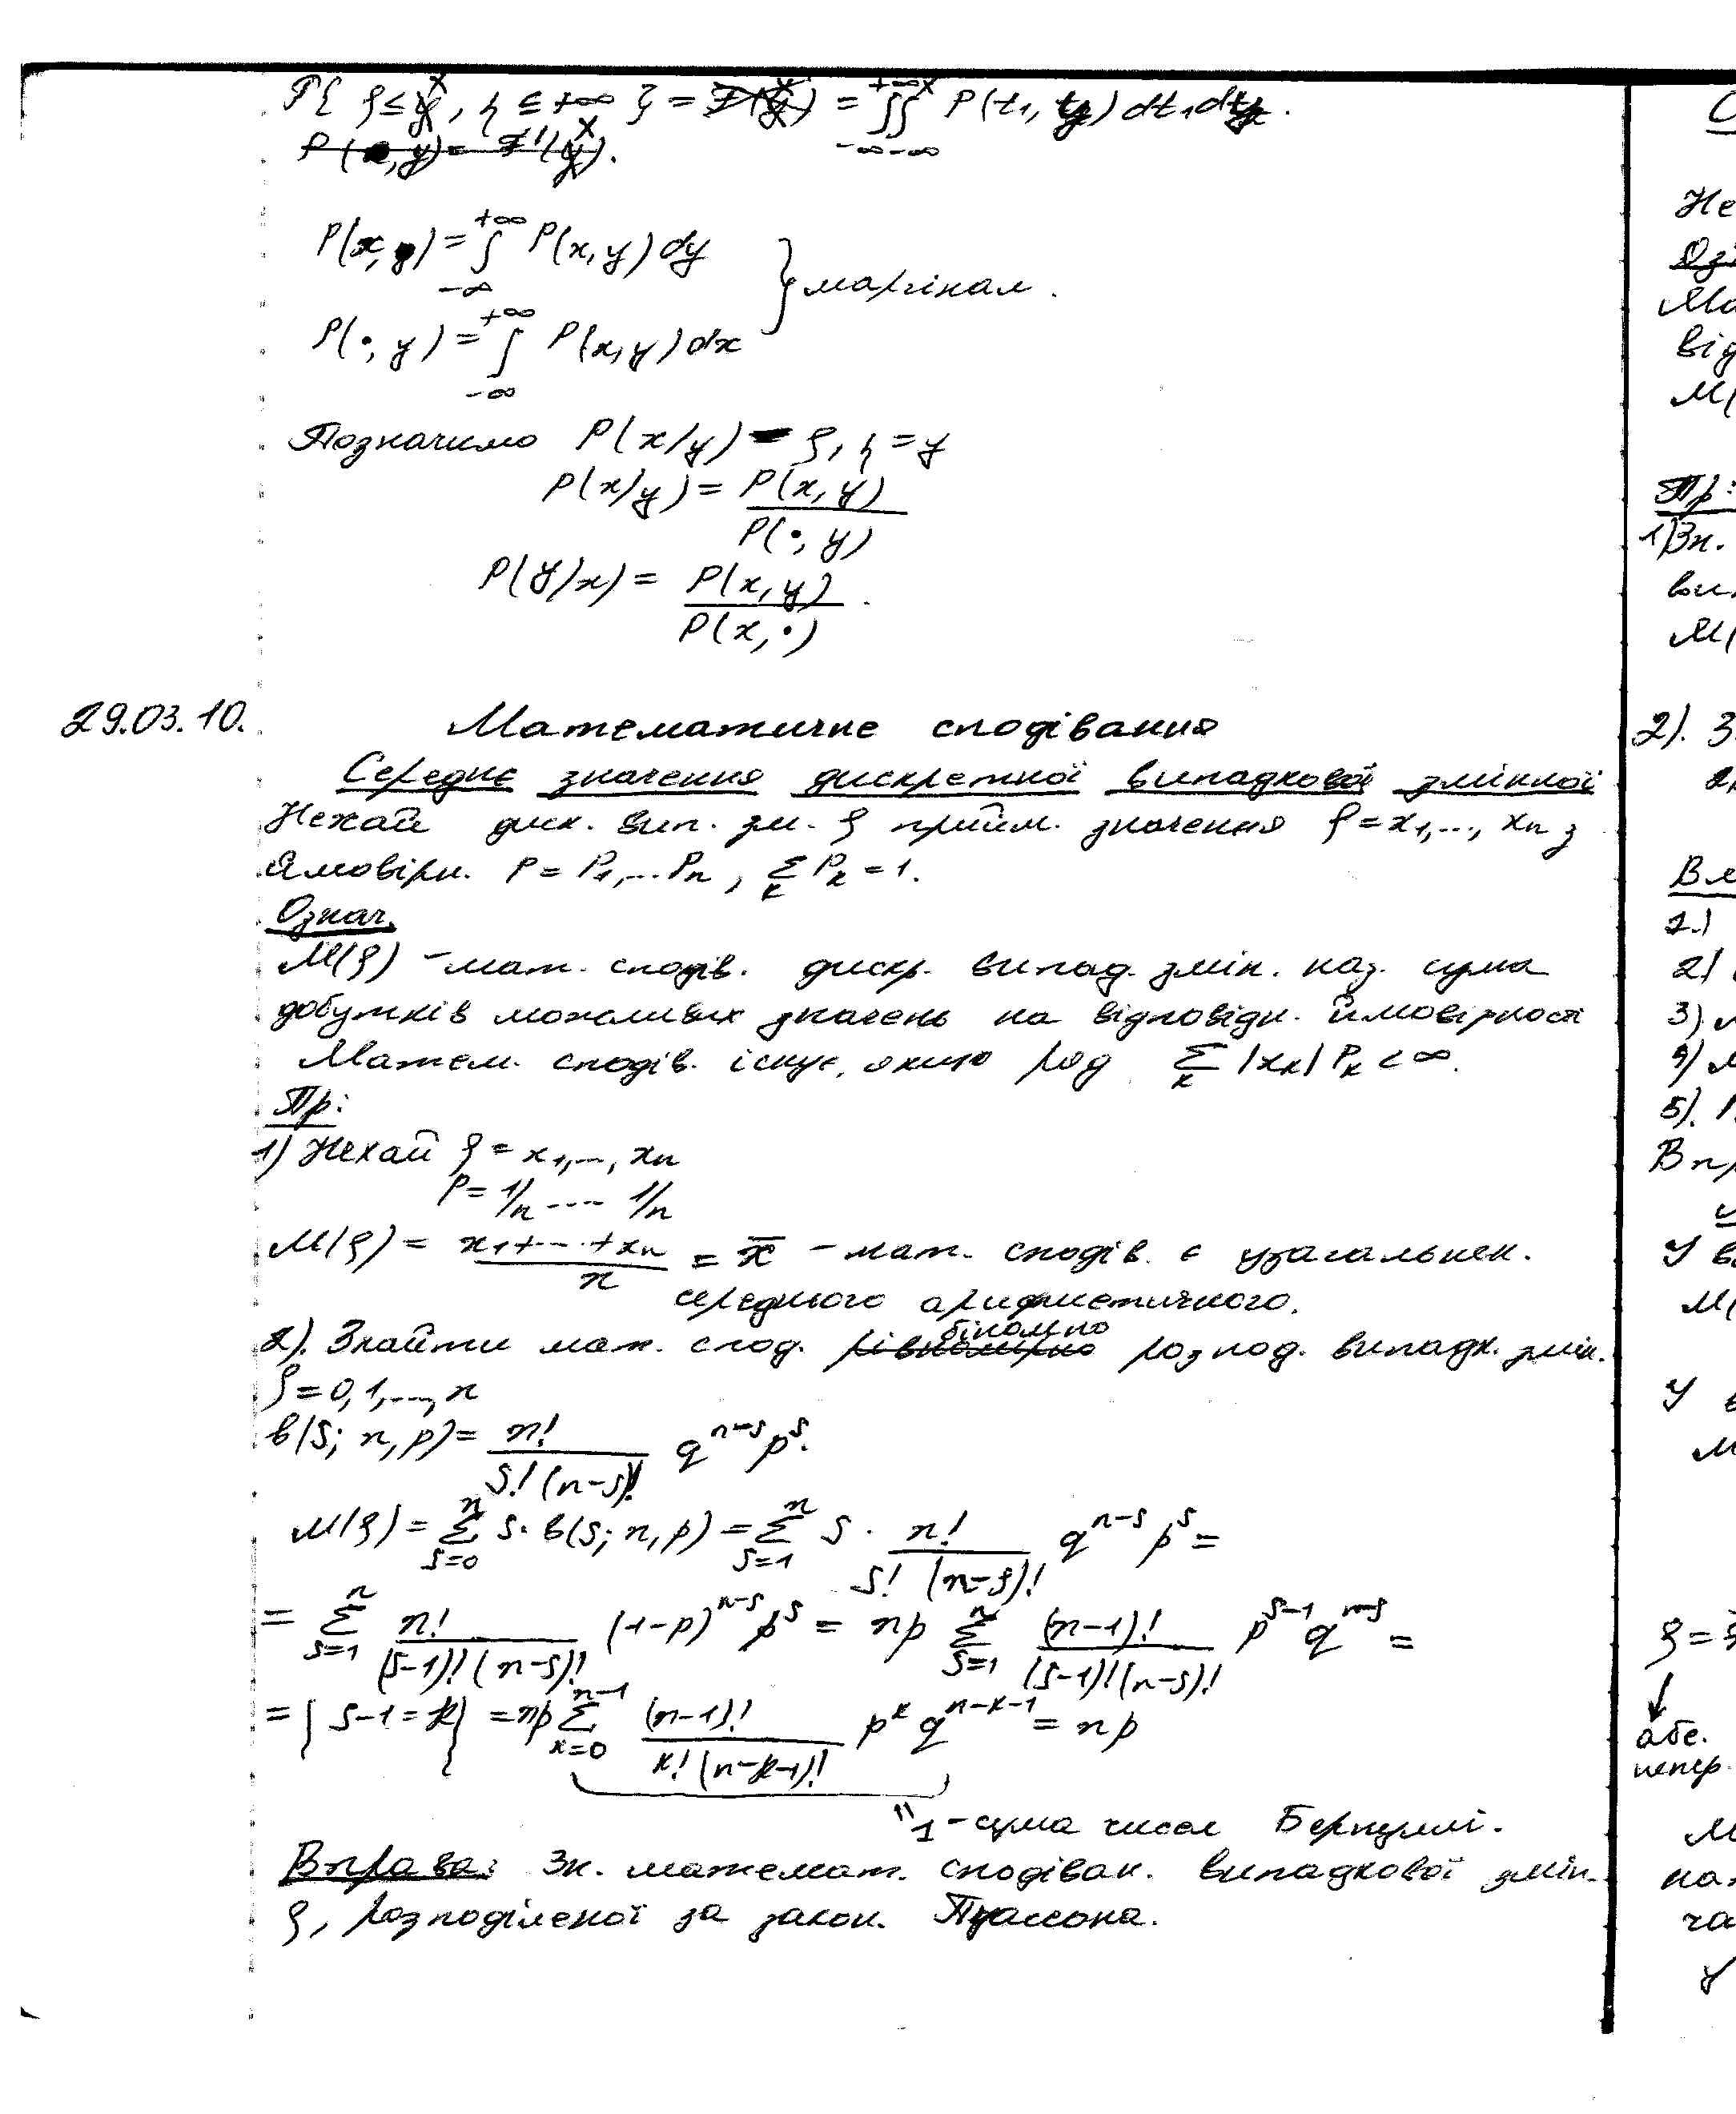 P{ ξ ≤ x, η ≤ +∞ } = ∫∫ P(t₁, t₂) dt₁dt₂.
P(x, •) = ∫_{-∞}^{+∞} P(x, y) dy
} маргінал.
P(•, y) = ∫_{-∞}^{+∞} P(x, y) dx
Позначимо P(x/y) – ξ, η = y
P(x/y) = P(x, y) / P(•, y)
P(y/x) = P(x, y) / P(x, •).
29.03.10. Математичне сподівання
Середнє значення дискретної випадкової змінної
Нехай диск. вип. зм. ξ прийм. значення ξ = x₁,..., xₙ з
ймовірн. P = P₁,...Pₙ, Σ_k P_k = 1.
Означ.
M(ξ) – мат. сподів. дискр. випад. змін. наз. сума
добутків можливих значень на відповідн. ймовірності
Матем. сподів. існує, якщо ряд Σ_k |x_k| P_k < ∞.
Пр:
1) Нехай ξ = x₁,..., xₙ
P = 1/n .... 1/n
M(ξ) = (x₁+...+xₙ)/n = x̄ – мат. сподів. є узагальнен.
середнього арифметичного.
2). Знайти мат. спод. біномно розпод. випадк. змін.
ξ = 0, 1,..., n
b(s; n, p) = n! / (s!(n-s)!) q^{n-s} p^s.
M(ξ) = Σ_{s=0}^{n} s · b(s; n, p) = Σ_{s=1}^{n} s · n! / (s! (n-s)!) q^{n-s} p^s =
= Σ_{s=1}^{n} n! / ((s-1)!(n-s)!) (1-p)^{n-s} p^s = np Σ_{s=1}^{n} (n-1)! / ((s-1)!(n-s)!) p^{s-1} q^{n-s} =
= { s-1 = k } = np Σ_{k=0}^{n-1} (n-1)! / (k!(n-k-1)!) p^k q^{n-k-1} = np
"1 – сума чисел Бернуллі.
Вправа: Зн. математ. сподіван. випадкової змін.
ξ, розподіленої за закон. Пуассона.
Не
Ма
від
M(
Пр:
1) Зн.
M(
2). З
Вл
2.)
2)
3). M
4) M
5).
Впр
У
M(
У
ξ =
абс.
непер.